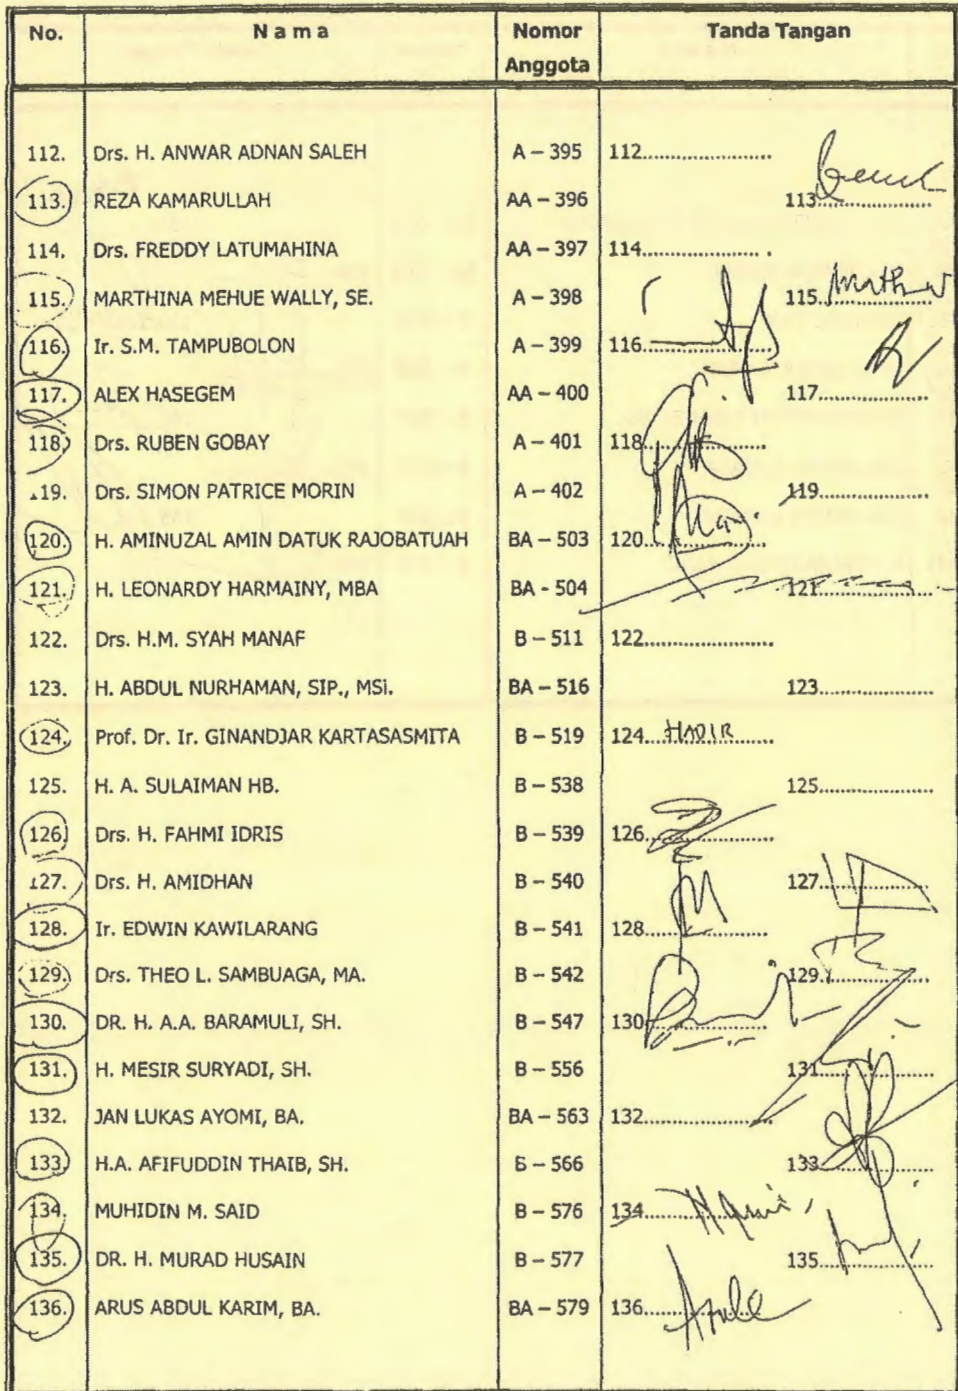 No. N a m a Nomor Anggota Tanda Tangan
112. Drs. H. ANWAR ADNAN SALEH A – 395 112......................
113. REZA KAMARULLAH AA – 396 113......................
114. Drs. FREDDY LATUMAHINA AA – 397 114......................
115. MARTHINA MEHUE WALLY, SE. A – 398 115......................
116. Ir. S.M. TAMPUBOLON A – 399 116......................
117. ALEX HASEGEM AA – 400 117......................
118. Drs. RUBEN GOBAY A – 401 118......................
119. Drs. SIMON PATRICE MORIN A – 402 119......................
120. H. AMINUZAL AMIN DATUK RAJOBATUAH BA – 503 120......................
121. H. LEONARDY HARMAINY, MBA BA - 504 121......................
122. Drs. H.M. SYAH MANAF B – 511 122......................
123. H. ABDUL NURHAMAN, SIP., MSi. BA – 516 123......................
124. Prof. Dr. Ir. GINANDJAR KARTASASMITA B – 519 124...HADIR..........
125. H. A. SULAIMAN HB. B – 538 125......................
126. Drs. H. FAHMI IDRIS B – 539 126......................
127. Drs. H. AMIDHAN B – 540 127......................
128. Ir. EDWIN KAWILARANG B – 541 128......................
129. Drs. THEO L. SAMBUAGA, MA. B – 542 129......................
130. DR. H. A.A. BARAMULI, SH. B – 547 130......................
131. H. MESIR SURYADI, SH. B – 556 131......................
132. JAN LUKAS AYOMI, BA. BA – 563 132......................
133. H.A. AFIFUDDIN THAIB, SH. B – 566 133......................
134. MUHIDIN M. SAID B – 576 134......................
135. DR. H. MURAD HUSAIN B – 577 135......................
136. ARUS ABDUL KARIM, BA. BA – 579 136......................